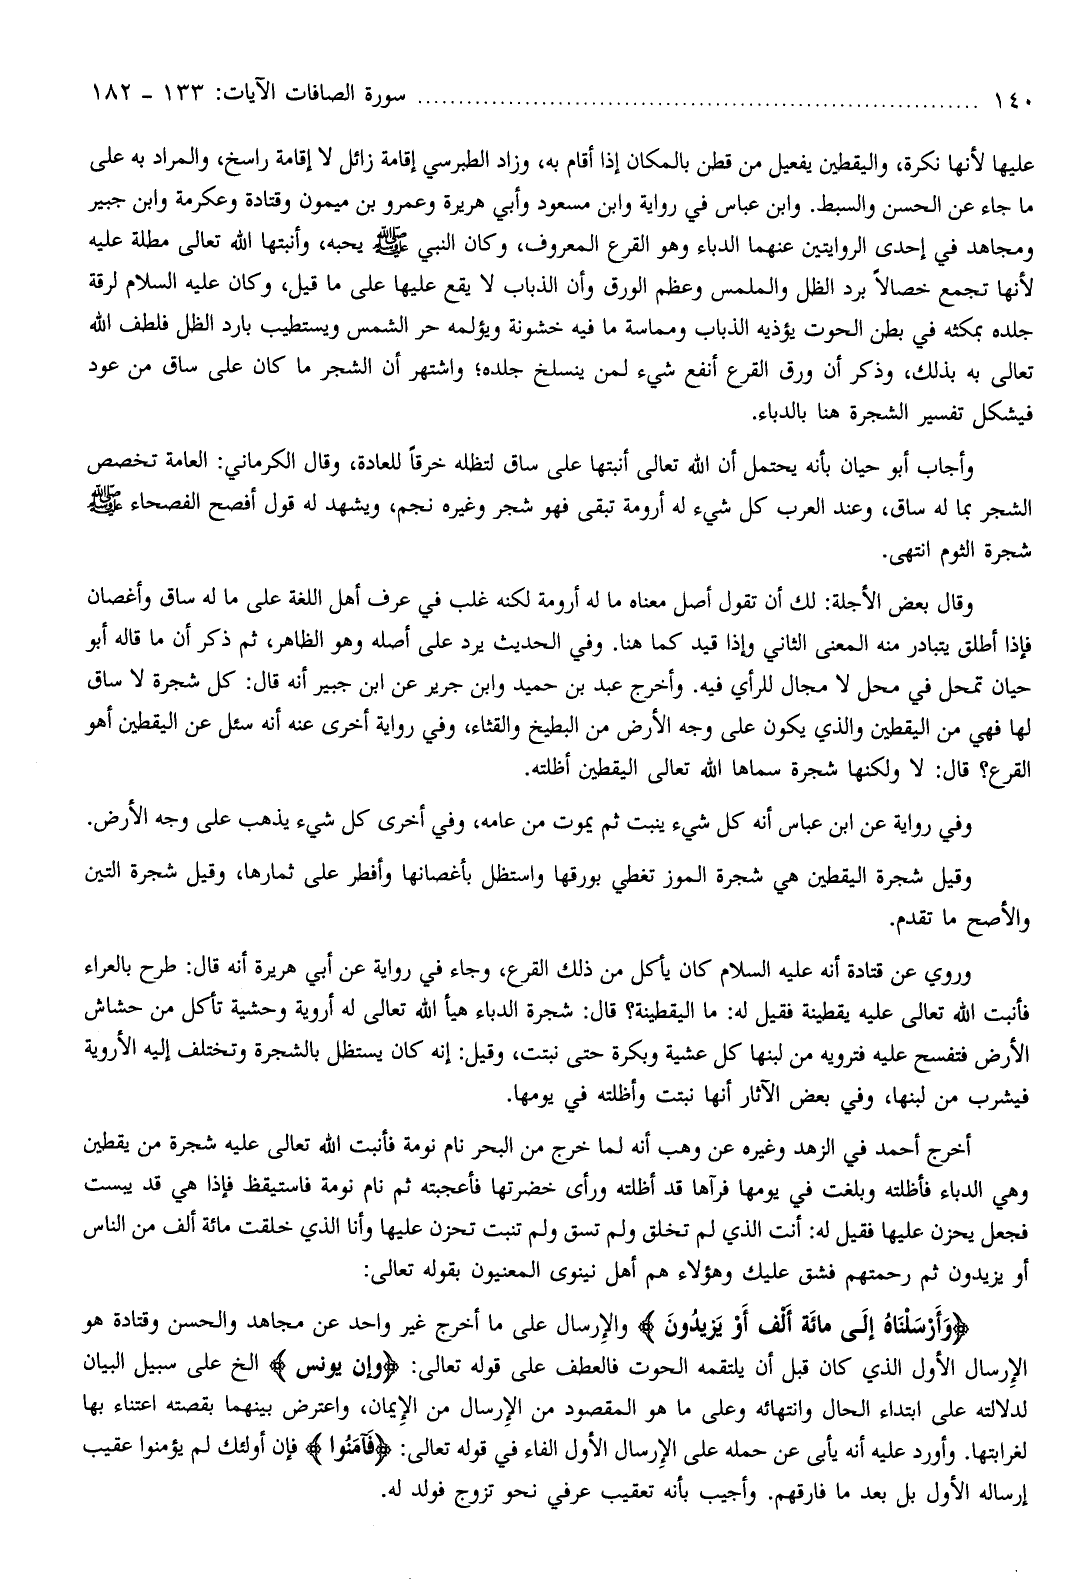 ١٤٠ ........................................................................ سورة الصافات الآيات: ١٣٣ - ١٨٢
عليها لأنها نكرة، واليقطين يفعيل من قطن بالمكان إذا أقام به، وزاد الطبرسي إقامة زائل لا إقامة راسخ، والمراد به على
ما جاء عن الحسن والسبط. وابن عباس في رواية وابن مسعود وأبي هريرة وعمرو بن ميمون وقتادة وعكرمة وابن جبير
ومجاهد في إحدى الروايتين عنهما الدباء وهو القرع المعروف، وكان النبي ﷺ يحبه، وأنبتها الله تعالى مطلة عليه
لأنها تجمع خصالاً برد الظل والملمس وعظم الورق وأن الذباب لا يقع عليها على ما قيل، وكان عليه السلام لرقة
جلده بمكثه في بطن الحوت يؤذيه الذباب ومماسة ما فيه خشونة ويؤلمه حر الشمس ويستطيب بارد الظل فلطف الله
تعالى به بذلك، وذكر أن ورق القرع أنفع شيء لمن ينسلخ جلده؛ واشتهر أن الشجر ما كان على ساق من عود
فيشكل تفسير الشجرة هنا بالدباء.
وأجاب أبو حيان بأنه يحتمل أن الله تعالى أنبتها على ساق لتظله خرقاً للعادة، وقال الكرماني: العامة تخصص
الشجر بما له ساق، وعند العرب كل شيء له أرومة تبقى فهو شجر وغيره نجم، ويشهد له قول أفصح الفصحاء ﷺ
شجرة الثوم انتهى.
وقال بعض الأجلة: لك أن تقول أصل معناه ما له أرومة لكنه غلب في عرف أهل اللغة على ما له ساق وأغصان
فإذا أطلق يتبادر منه المعنى الثاني وإذا قيد كما هنا. وفي الحديث يرد على أصله وهو الظاهر، ثم ذكر أن ما قاله أبو
حيان تمحل في محل لا مجال للرأي فيه. وأخرج عبد بن حميد وابن جرير عن ابن جبير أنه قال: كل شجرة لا ساق
لها فهي من اليقطين والذي يكون على وجه الأرض من البطيخ والقثاء، وفي رواية أخرى عنه أنه سئل عن اليقطين أهو
القرع؟ قال: لا ولكنها شجرة سماها الله تعالى اليقطين أظلته.
وفي رواية عن ابن عباس أنه كل شيء ينبت ثم يموت من عامه، وفي أخرى كل شيء يذهب على وجه الأرض.
وقيل شجرة اليقطين هي شجرة الموز تغطي بورقها واستظل بأغصانها وأفطر على ثمارها، وقيل شجرة التين
والأصح ما تقدم.
وروي عن قتادة أنه عليه السلام كان يأكل من ذلك القرع، وجاء في رواية عن أبي هريرة أنه قال: طرح بالعراء
فأنبت الله تعالى عليه يقطينة فقيل له: ما اليقطينة؟ قال: شجرة الدباء هيأ الله تعالى له أروية وحشية تأكل من حشاش
الأرض فتفسح عليه فترويه من لبنها كل عشية وبكرة حتى نبتت، وقيل: إنه كان يستظل بالشجرة وتختلف إليه الأروية
فيشرب من لبنها، وفي بعض الآثار أنها نبتت وأظلته في يومها.
أخرج أحمد في الزهد وغيره عن وهب أنه لما خرج من البحر نام نومة فأنبت الله تعالى عليه شجرة من يقطين
وهي الدباء فأظلته وبلغت في يومها فرآها قد أظلته ورأى خضرتها فأعجبته ثم نام نومة فاستيقظ فإذا هي قد يبست
فجعل يحزن عليها فقيل له: أنت الذي لم تخلق ولم تسق ولم تنبت تحزن عليها وأنا الذي خلقت مائة ألف من الناس
أو يزيدون ثم رحمتهم فشق عليك وهؤلاء هم أهل نينوى المعنيون بقوله تعالى:
﴿وَأَرْسَلْنَاهُ إِلَى مائَة أَلْف أَوْ يَزِيدُونَ﴾ والإرسال على ما أخرج غير واحد عن مجاهد والحسن وقتادة هو
الإرسال الأول الذي كان قبل أن يلتقمه الحوت فالعطف على قوله تعالى: ﴿وإن يونس﴾ الخ على سبيل البيان
لدلالته على ابتداء الحال وانتهائه وعلى ما هو المقصود من الإرسال من الإيمان، واعترض بينهما بقصته اعتناء بها
لغرابتها. وأورد عليه أنه يأبى عن حمله على الإرسال الأول الفاء في قوله تعالى: ﴿فَآمَنُوا﴾ فإن أولئك لم يؤمنوا عقيب
إرساله الأول بل بعد ما فارقهم. وأجيب بأنه تعقيب عرفي نحو تزوج فولد له.